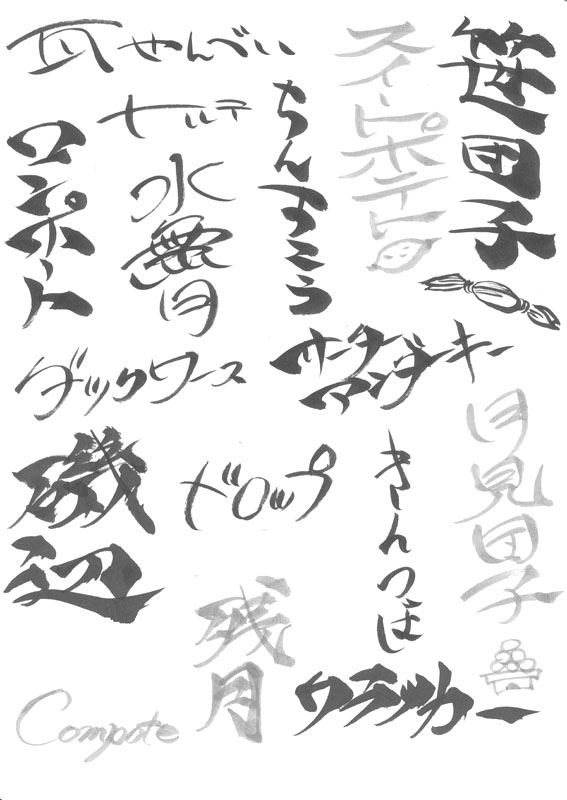 笹団子
スイートポテト
瓦せんべい
ちんすこう
コンポート
水無月
サーター
アンダーギー
ダックワース
月見団子
きんつば
ドロップ
磯辺
残月
クラッカー
Compote